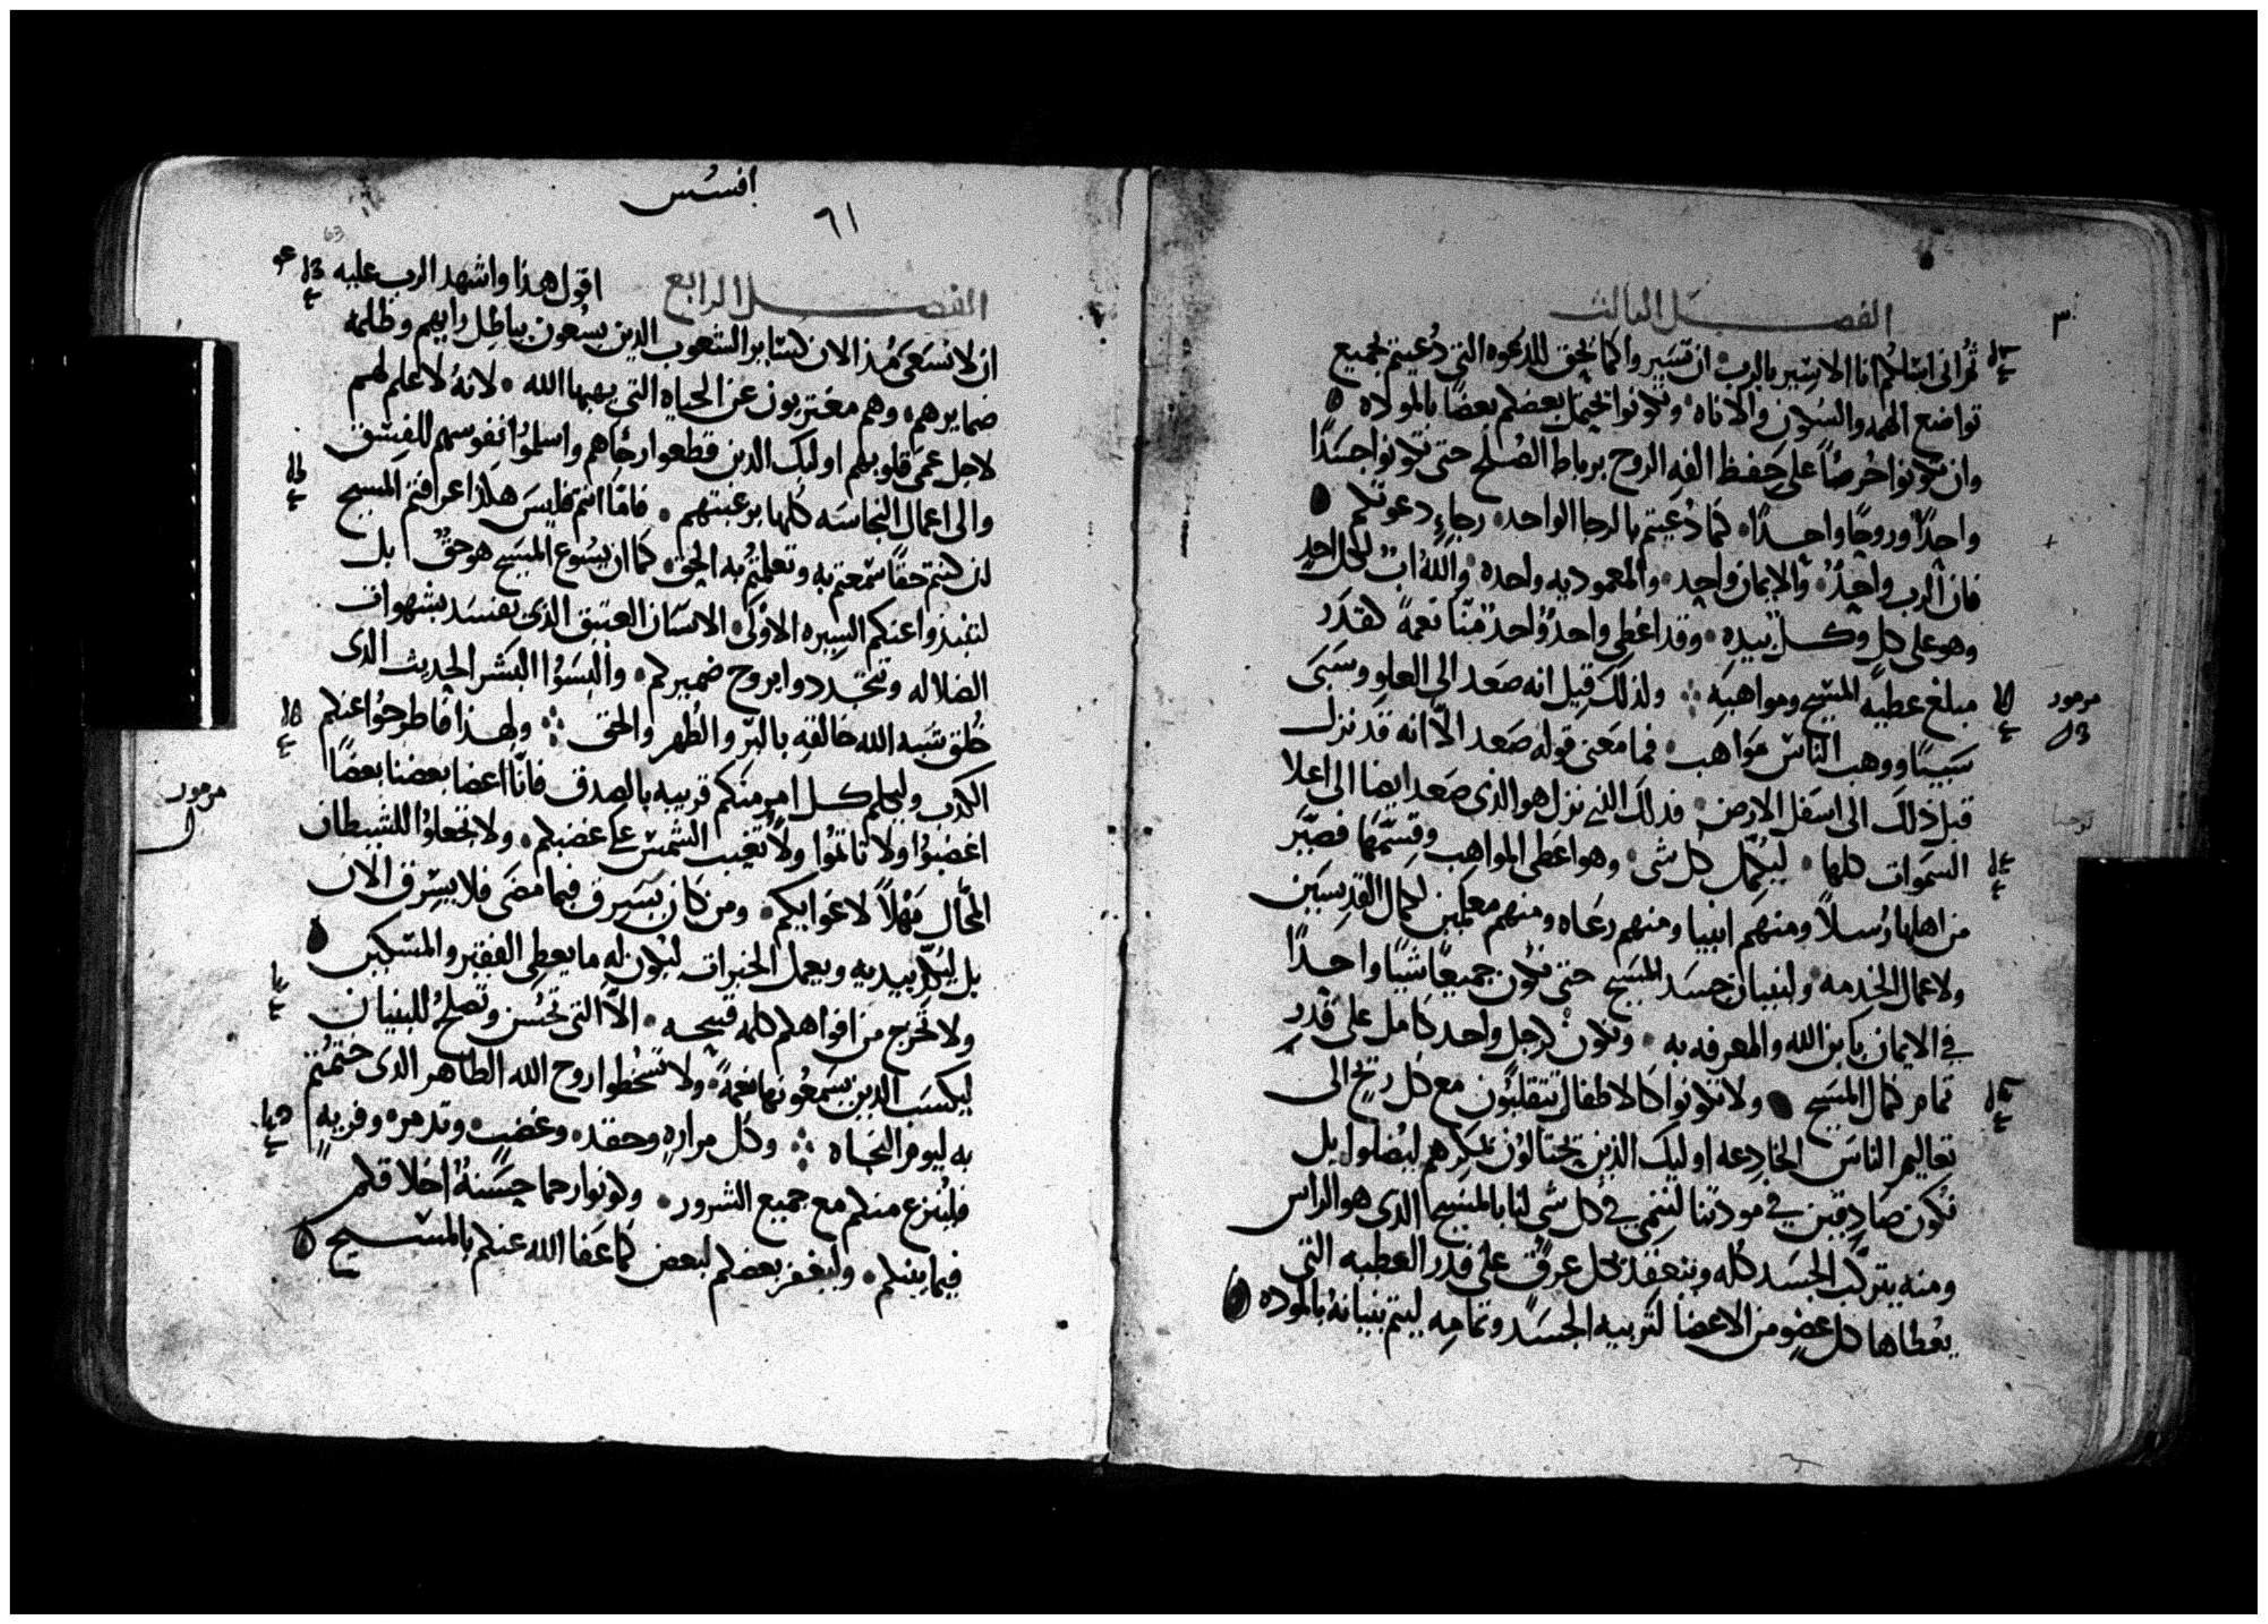 الفصل الثالث
ثم انى اسالكم انا الاسير بالرب ان تسيروا كما يحق للدعوه التي دُعيتم بجميع
تواضع الهمه والسكون والاناه وتكونوا يحتمل بعضكم بعضًا بالمولاه
وان تكونوا حُرصًا على حفظ الفه الروح برباط الصُلح حتى تكونوا جسَدًا
واحدًا وروحًا واحدًا كما دُعيتم بالرجا الواحد رجاءِ دعوتكم
فان الرب واحدٌ والايمان واحد والمعموديه واحده والله ابٌ لكل احدٍ
وهو على كل وكل بيده وقد اعُطى واحدٌ واحدٌ منّا نعمةً كقدَر
مبلغ عطيه المسيح ومواهبه ولذلك قيل انه صَعد الى العلو وسَبَى
سَبيًا ووهب الناس مَواهب فما معنى قوله صَعد الّا انه قد نزل
قبل ذلك الى اسفل الارض فذلك الذى نزل هو الذى صَعد ايضا الى اعلا
السمَوات كلها ليُكمل كل شى وهو اعَطى المواهب وقسّمَها فصيّر
من اهلها رُسلاً ومنهم انبيا ومنهم رعَاه ومنهم معلمين لكمال القديسين
ولاعمال الخدمه ولبنيان جسَد المسيح حتى نكون جميعًا شيًا واحدًا
في الايمان بابن الله والمعرفه به ونكون كرجل واحد كامل على قدرِ
تمام كمال المسَيح ولا تكونوا كالاطفال تتقلبُون مع كل ريح الى
تعاليم الناس الخادعه اوليك الذين يحتالوُن بمكرهم ليُضلوا بل
نكون صَادقين في مودتنا لننمي في كل شى لنا بالمسيح الذى هو الراس
ومنه يتركّب الجسَد كُله وينعقد بكل عرقٍ على قدر العطيه التي
يعُطاها كل عضوٍ من الاعضا لتربيه الجسَد وتمامِه ليتم بنيانهُ بالموده
مرمور
افسُس
٦١
63
الفصل الرابع
اقول هذا واشهد الرب عليه
ان لا تسَعَى مُذ الان كسَاير الشعوب الذين يسعُون بباطِل رايهم وظلمه
ضمايرهم وهم مغتربون عن الحياه التي يهبها الله لانهُ لا علم لهم
لاجل عمَى قلوبهم اوليك الذين قطعوا رجَاهم واسلموُا نفوسهم للفِسق
والى اعمال النجاسَه كلها برغبتهم فامّا انتم فليسَ هكذا عرافتم المسيح
ان كنتم حقًا سَمعتم به وتعلمتُم به الحق كما ان يسُوع المسَيح هو حقٌ بل
لتنبذوا عنكم السِيره الاوُلى الانسَان العتيق الذى يفسَد بشهوات
الضلاله وتتجَددوا بروح ضميركم والبسَوُا البَشر الحديث الذى
خُلق شبه الله خالقه بالبِرّ والطُهر والحق ولهذا فاطرحوُا عنكم
الكدب وليكلم كل امرٍ منكم قريبه بالصدق فانّا اعضا بعضنا بعضًا
اغضبوُا ولا تاثموُا ولا تغيب الشمسَ على غضبكم ولا تجعلوُا للشيطان
المحّال مَهلاً لاغوايكم ومن كان يسَرق فيما مضَى فلا يسَرق الان
بل ليَكدّ بيديه ويعمل الخيرات ليكون له ما يعطى الفقير والمسَكين
ولا تخرج من افواهكم كلمه قبيحه الّا التي تحَسُن وتَصلحُ للبنيان
ليكسَب الذين يسَمعُونها نعمةً ولا تسخُطوا روح الله الطاهر الذى خُتمتُم
به ليوم النجاه وكل مراره وحقد وغضبٍ وتدمر وفريهٍ
فليُنزع منكم مع جميع الشرور وكونوا رحما حسَنهُ اخلاقكم
فيما بينكم وليغفر بعضكم لبعض كما عَفا الله عنكم بالمسَيح
مرمور